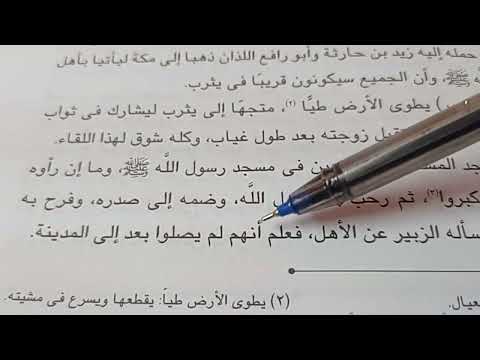 حمله إليه زيد بن حارثة وأبو رافع اللذان ذهبا إلى مكة ليأتيا بأهل
ﷺ، وأن الجميع سيكونون قريبًا فى يثرب.
) يطوى الأرض طيًا (٢)، متجهًا إلى يثرب ليشارك فى ثواب
زوجته بعد طول غياب، وكله شوق لهذا اللقاء.
فى مسجد رسول اللَّه ﷺ، وما إن رأوه
كبروا(٣)، ثم رحب اللَّه، وضمه إلى صدره، وفرح به
سأله الزبير عن الأهل، فعلم أنهم لم يصلوا بعد إلى المدينة.
(٢) يطوى الأرض طيًا: يقطعها ويسرع فى مشيته.